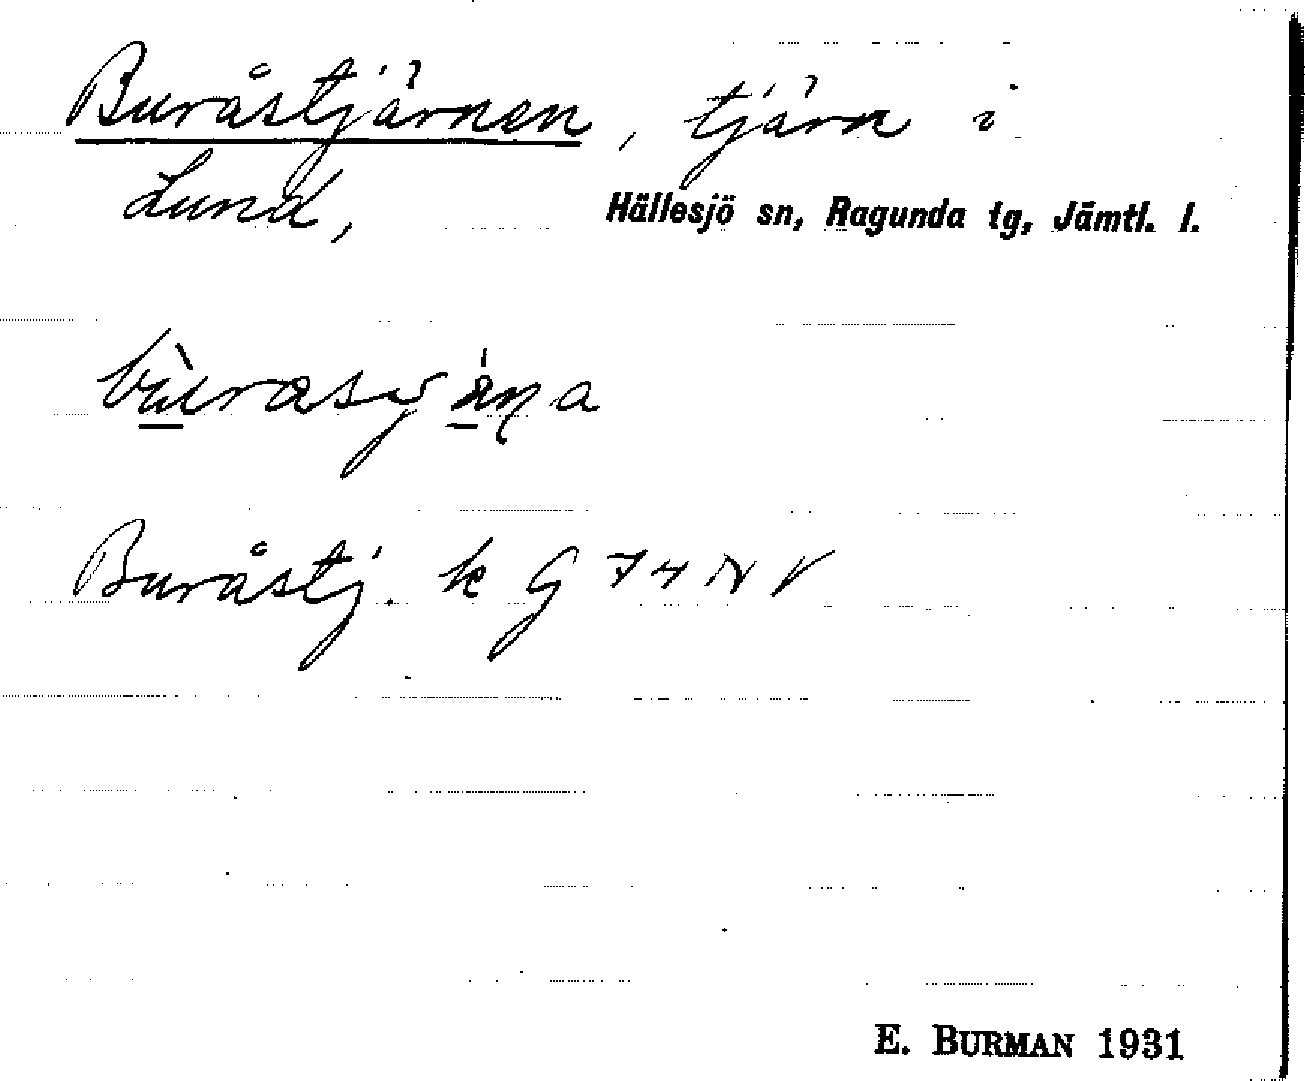 Buråstjärnen, tjärn i
Lund, Hällesjö sn, Ragunda tg, Jämtl. l.
Buråstj. k G 74 NV
E. BURMAN 1931